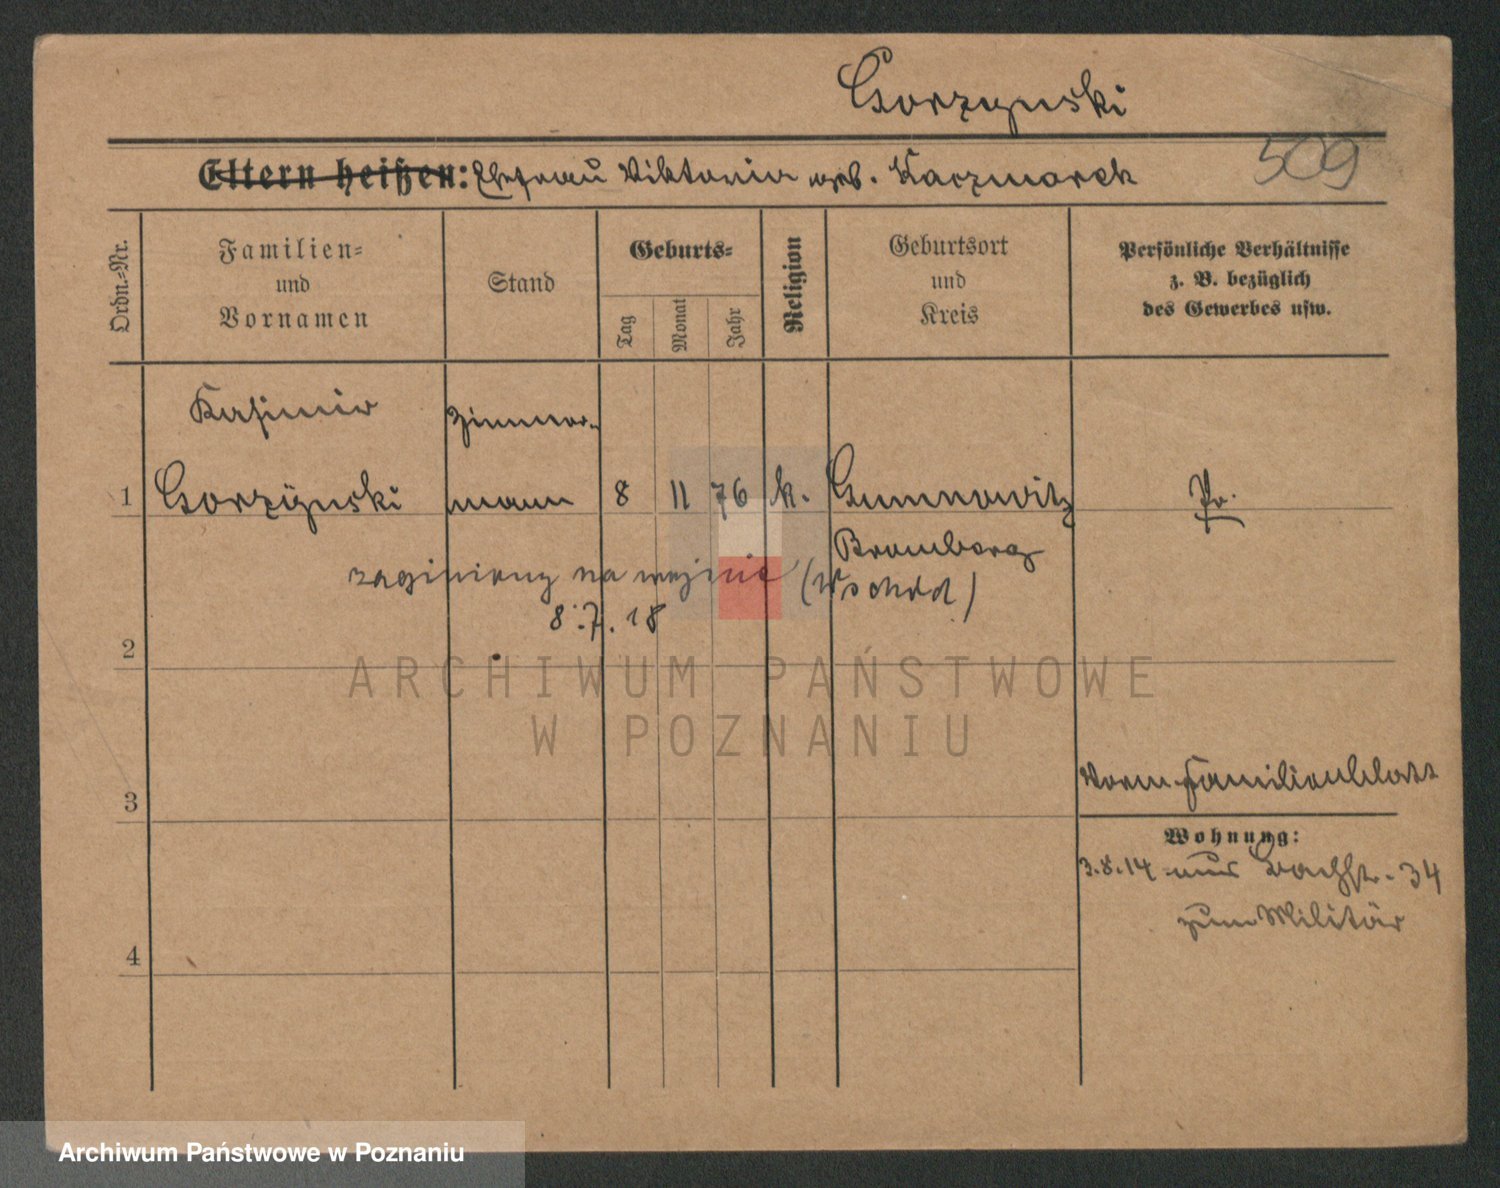 Gorzynski
509
Eltern heißen: Ehefrau Viktoria geb. Kaczmarek
Ordn.-Nr.
Familien-
und
Vornamen
Stand
Geburts-
Tag
Monat
Jahr
Religion
Geburtsort
und
Kreis
Persönliche Verhältnisse
z. B. bezüglich
des Gewerbes usw.
Kasimir Zimmer-
1 Gorzÿnski mann 8 11 76 k. Gumnowitz Pr.
Bromberg
zaginiony na wojnie (Wschód)
8.7.18
2
ARCHIWUM PAŃSTWOWE
W POZNANIU
3
Vorm. Familienblatt
Wohnung:
3.8.14 aus Bachstr. 34
zum Militär
4
Archiwum Państwowe w Poznaniu